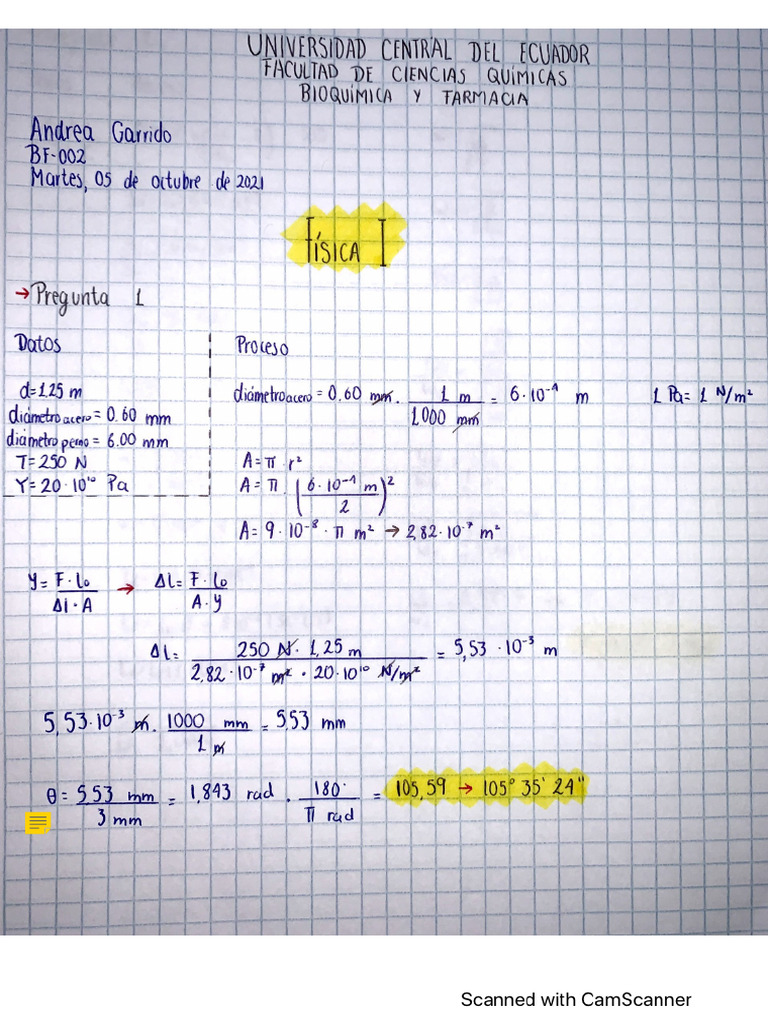 UNIVERSIDAD CENTRAL DEL ECUADOR
FACULTAD DE CIENCIAS QUÍMICAS
BIOQUÍMICA Y FARMACIA
Andrea Garrido
BF-002
Martes, 05 de octubre de 2021
FÍSICA I
→ Pregunta 1
Datos
d=1,25 m
diámetro acero = 0.60 mm
diámetro perno = 6.00 mm
T=250 N
Y=20·10¹⁰ Pa
Proceso
diámetro acero = 0,60 mm · 1 m / 1000 mm = 6·10⁻⁴ m 1 Pa = 1 N/m²
A = π · r²
A = π · (6·10⁻⁴ m / 2)²
A = 9·10⁻⁸ · π m² → 2,82·10⁻⁷ m²
Y = F·lo / Δl·A → Δl = F·lo / A·Y
Δl = 250 N · 1,25 m / 2,82·10⁻⁷ m² · 20·10¹⁰ N/m² = 5,53·10⁻³ m
5,53·10⁻³ m · 1000 mm / 1 m = 5,53 mm
θ = 5,53 mm / 3 mm = 1,843 rad · 180° / π rad = 105,59 → 105° 35' 24"
Scanned with CamScanner